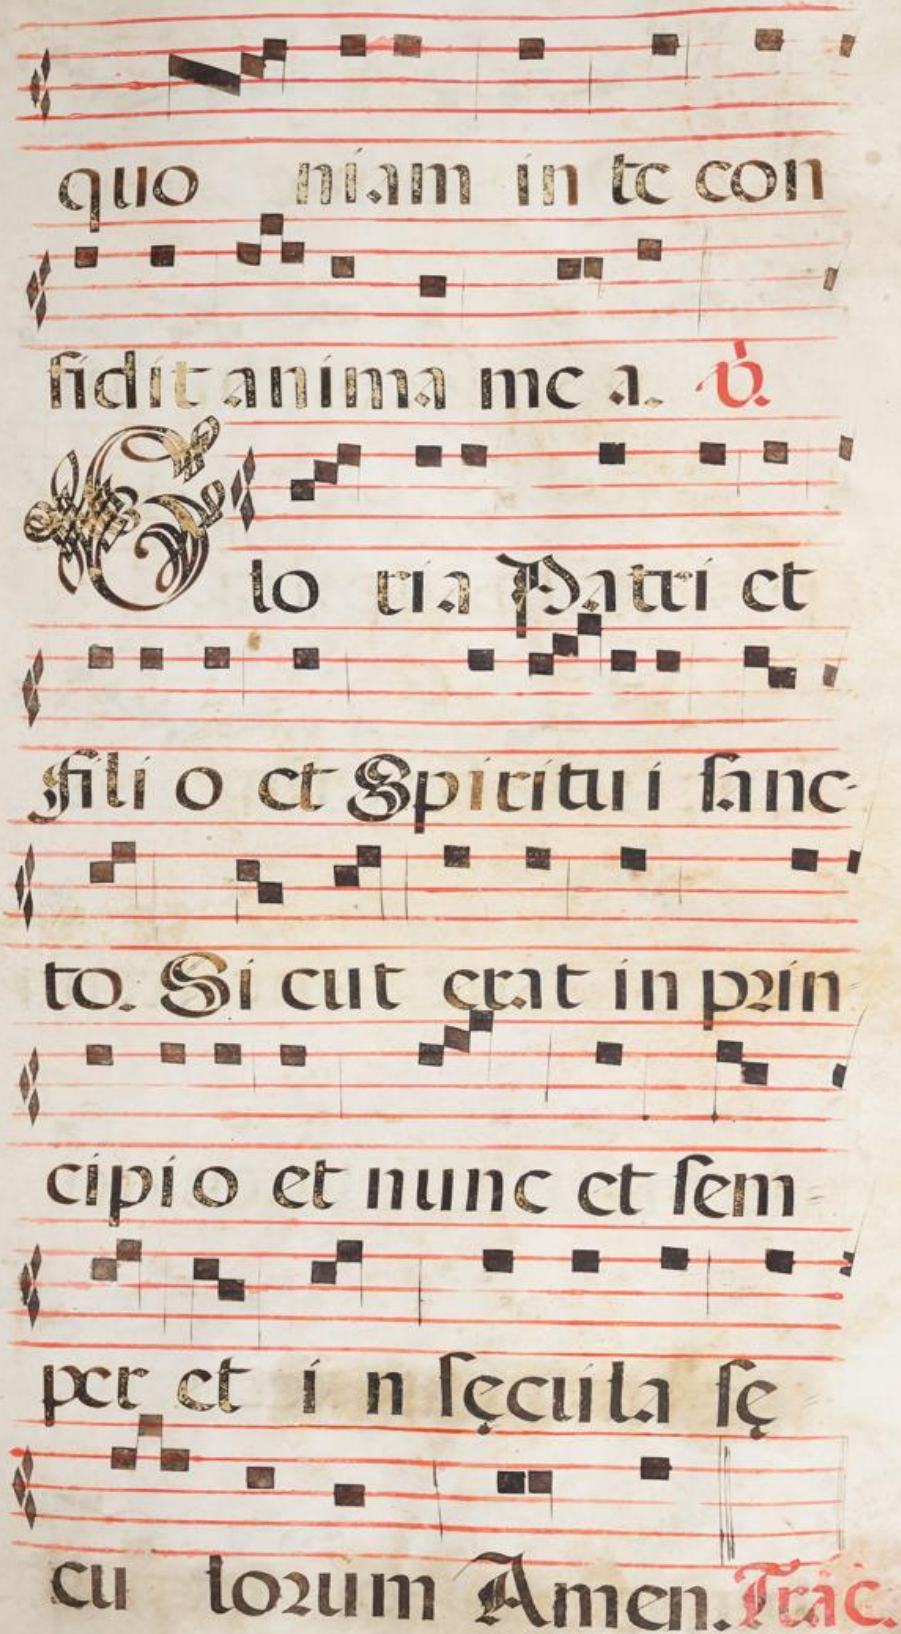 quo niam in te con
fidit anima me a. ℣.
Glo ria Patri et
fili o et Spiritui i sanc-
to. Si cut erat in prin
cipi o et nunc et sem
per et i n sęcula sę
cu lorum Amen. Trac.